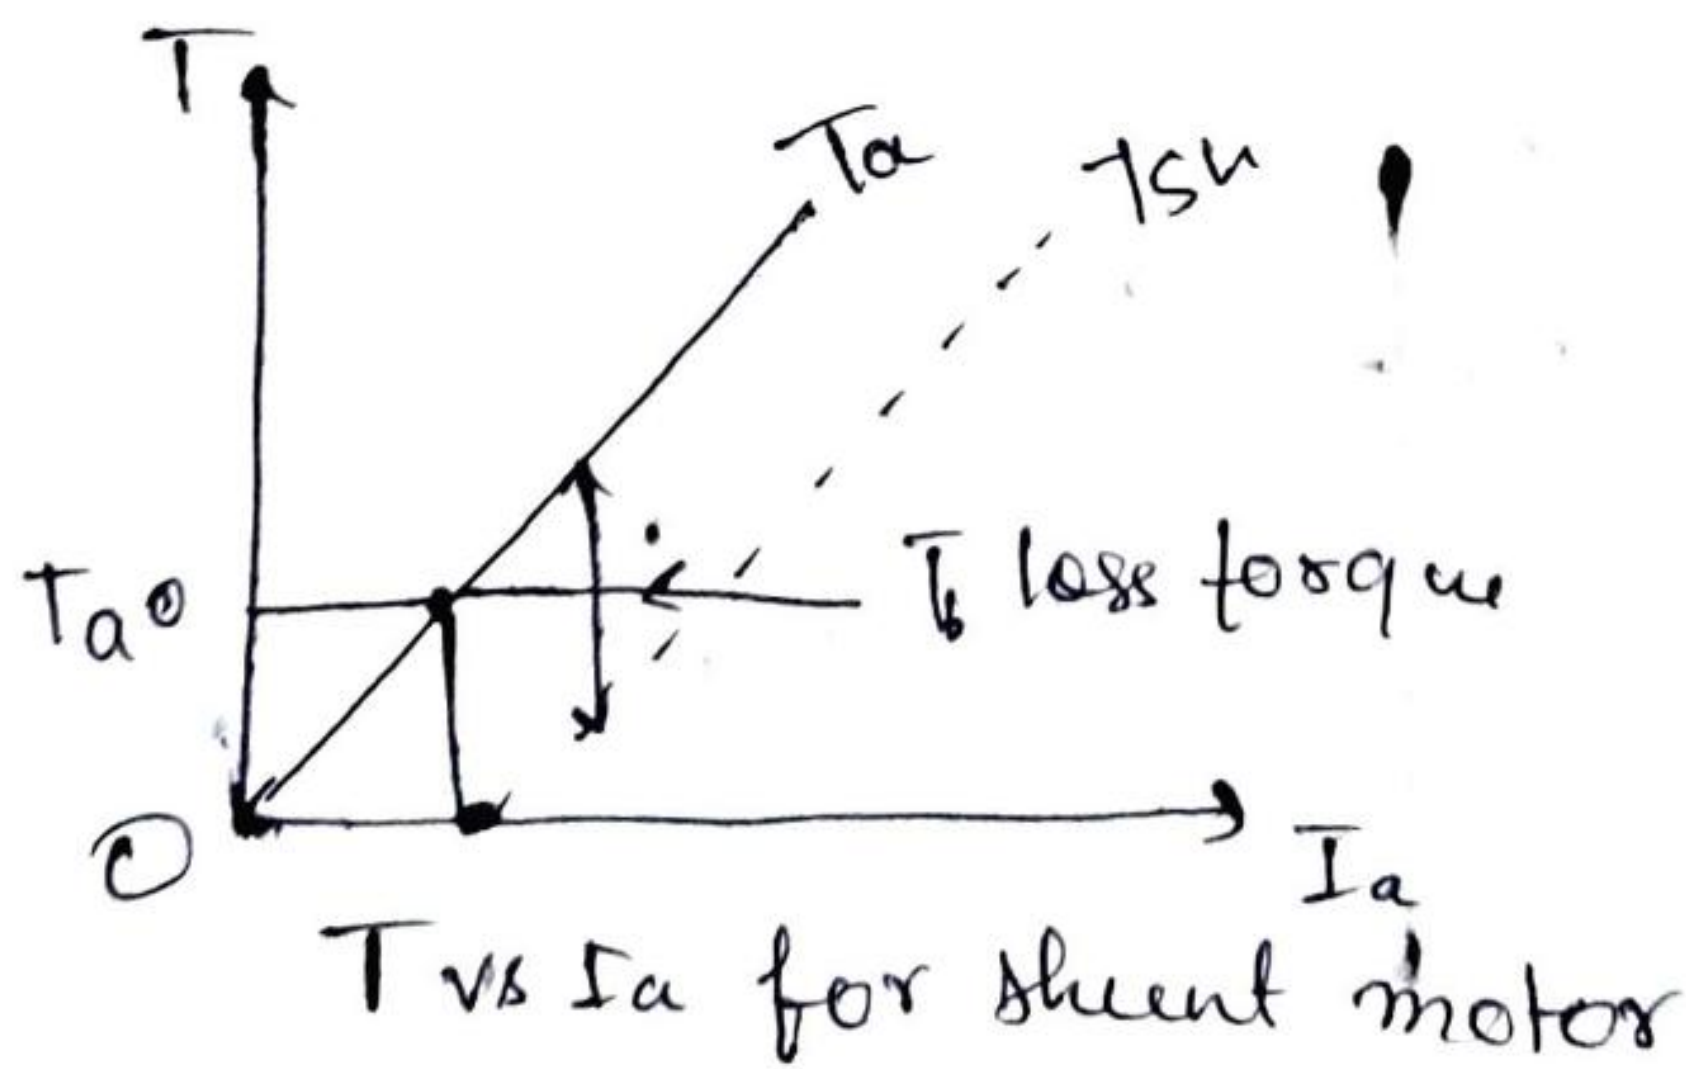 T
Ta
Tsh
Ta0
Tf loss torque
O
Ia
T vs Ia for shunt motor